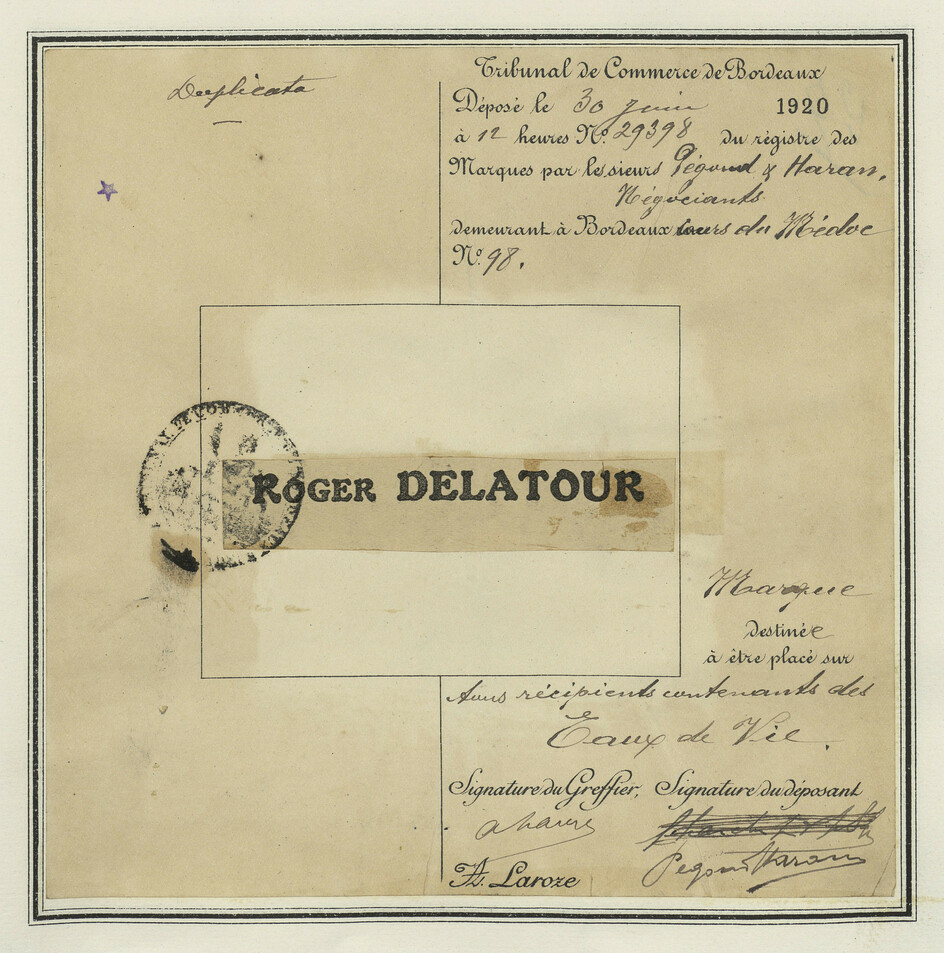 Duplicata
Tribunal de Commerce de Bordeaux
Déposé le 30 juin 1920
à 12 heures Nº 29398 du régistre des
Marques par les sieurs Pégoud & Haran,
Négociants
demeurant à Bordeaux cours du Médoc
Nº 98.
ROGER DELATOUR
Marque
destinée
à être placé sur
tous récipients contenants des
Eaux de Vie.
Signature du Greffier, Signature du déposant
Haran
A. Laroze